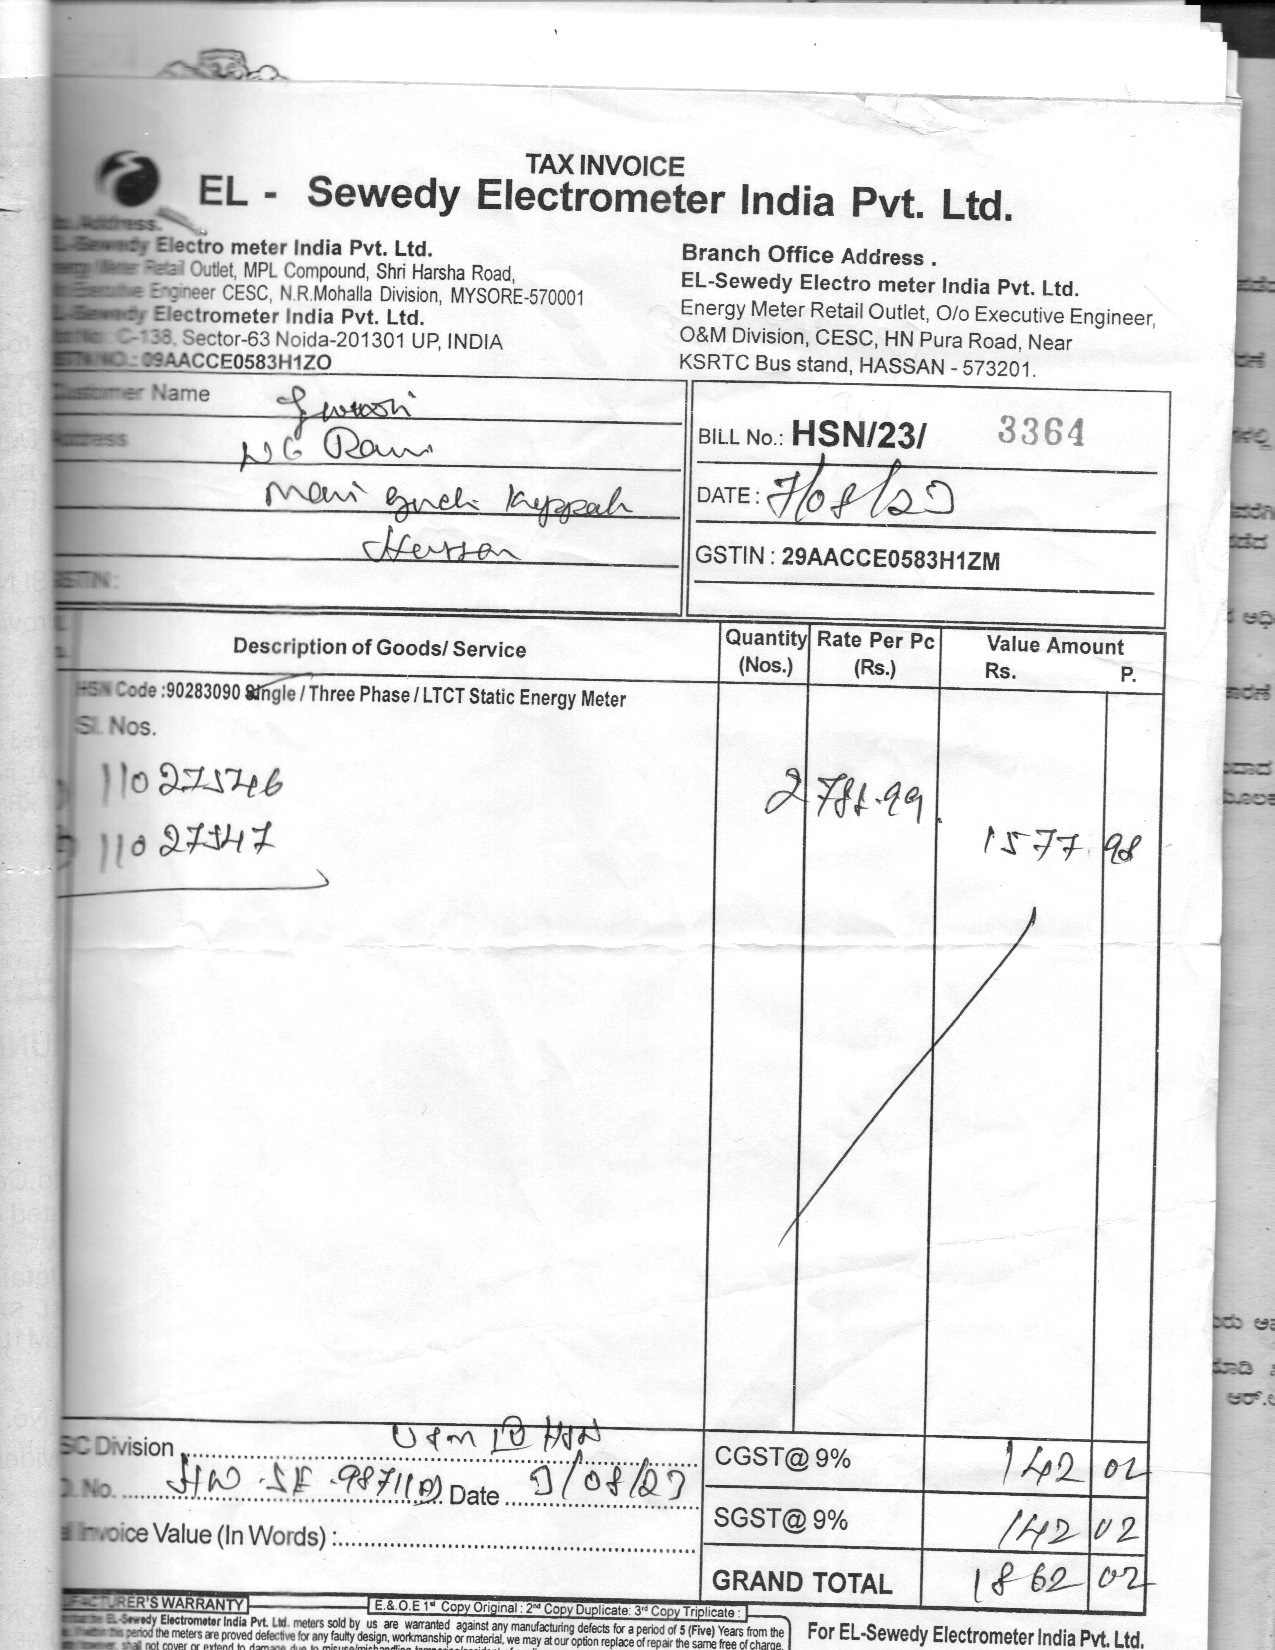 TAX INVOICE
EL - Sewedy Electrometer India Pvt. Ltd.
Address.
EL-Sewedy Electro meter India Pvt. Ltd.
Energy Meter Retail Outlet, MPL Compound, Shri Harsha Road,
Executive Engineer CESC, N.R.Mohalla Division, MYSORE-570001
EL-Sewedy Electrometer India Pvt. Ltd.
C-138, Sector-63 Noida-201301 UP, INDIA
GSTIN NO.: 09AACCE0583H1ZO
Branch Office Address .
EL-Sewedy Electro meter India Pvt. Ltd.
Energy Meter Retail Outlet, O/o Executive Engineer,
O&M Division, CESC, HN Pura Road, Near
KSRTC Bus stand, HASSAN - 573201.
Customer Name
Address
Hassan
GSTIN :
BILL No.: HSN/23/ 3364
DATE : 7/08/23
GSTIN : 29AACCE0583H1ZM
Description of Goods/ Service Quantity (Nos.) Rate Per Pc (Rs.) Value Amount Rs. P.
HSN Code :90283090 Single / Three Phase / LTCT Static Energy Meter
Sl. Nos.
110 27546 2 788.99
110 27547 1577 98
SC Division HSN
CGST@ 9% 142 02
No. Date /08/23
SGST@ 9% 142 02
Invoice Value (In Words) :
GRAND TOTAL 1862 02
MANUFACTURER'S WARRANTY E.& O.E 1st Copy Original : 2nd Copy Duplicate: 3rd Copy Triplicate :
EL-Sewedy Electrometer India Pvt. Ltd. meters sold by us are warranted against any manufacturing defects for a period of 5 (Five) Years from the
period the meters are proved defective for any faulty design, workmanship or material, we may at our option replace of repair the same free of charge.
shall not cover or extend to damage due to
For EL-Sewedy Electrometer India Pvt. Ltd.